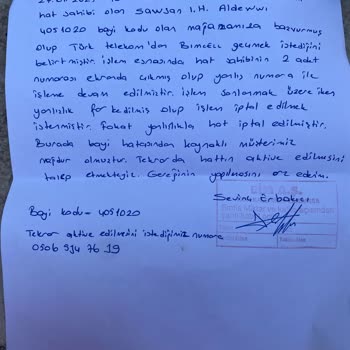 hat sahibi olan Sawsan I.H. Aldewvı
4051020 bayi kodu olan mağazamızda başvurmuş
olup Türk telekom'dan Bimcell geçmek istediğini
belirtmiştir. İşlem esnasında hat sahibinin 2 adet
numarası ekranda çıkmış olup yanlış numara ile
işleme devam edilmiştir. İşlem sonlanmak üzere iken
yanlışlık fark edilmiş olup işlem iptal edilmek
istenmiştir. Fakat yanlışlıkla hat iptal edilmiştir.
Burada bayi hatasından kaynaklı müşterimiz
mağdur olmuştur. Tekrarda hattın aktive edilmesini
talep etmekteyiz. Gereğinin yapılmasını arz ederim.
Sevinç Erbakıcı
BİM A.Ş.
Bayi kodu = 4051020
Tekrar aktive edilmesini istediğimiz numara
0506 934 76 19